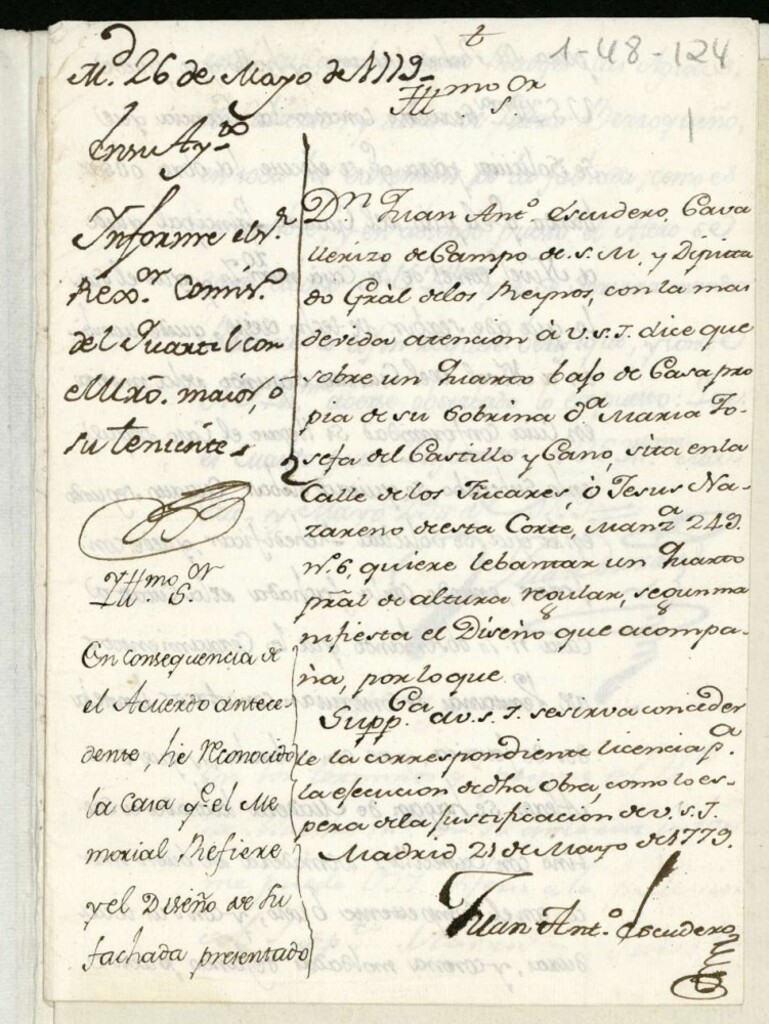 t
1-48-124
M.d 26 de Mayo de 1779
Ill.mo S.or
En su Ay.to
Informe el S.r
Rex.or Comis.o
del Quartel con
el Mrõ. maior, o
su teniente
D.n Juan Ant.o Escudero, Cava
llerizo de Campo de S. M. y Diputa
do Grãl de los Reynos, con la mas
devida atencion à V.S.I. dice que
sobre un Quarto bajo de Casa pro
pia de su Sobrina D.a Maria Jo
sefa del Castillo y Cano, sita en la
Calle de los Fucares, ò Jesus Na
zareno de esta Corte, Manz.a 249.
n.o 6, quiere lebantar un Quarto
prãl de altura regular, segun ma
nifiesta el Diseño que acompa-
ña, por lo que
Supp.ca a V.S.I. se sirva conceder
le la correspondiente licencia p.a
la ejecucion de dha Obra, como lo es-
pera de la justificacion de V.S.I.
Madrid 21 de Mayo de 1779.
Juan Ant.o Escudero
Ill.mo S.or
En consequencia de
el Acuerdo antece-
dente, he Reconocido
la Casa q.e el Me
morial Refiere
y el Diseño de su
fachada presentado